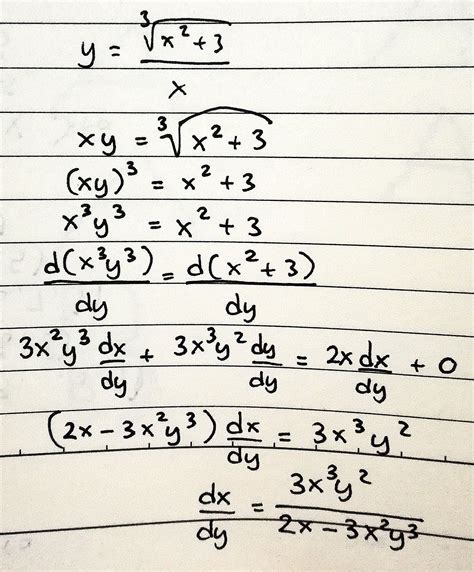 y = ∛(x² + 3) / x
xy = ∛(x² + 3)
(xy)³ = x² + 3
x³y³ = x² + 3
d(x³y³)/dy = d(x² + 3)/dy
3x²y³ dx/dy + 3x³y² dy/dy = 2x dx/dy + 0
(2x − 3x²y³) dx/dy = 3x³y²
dx/dy = 3x³y² / (2x − 3x²y³)